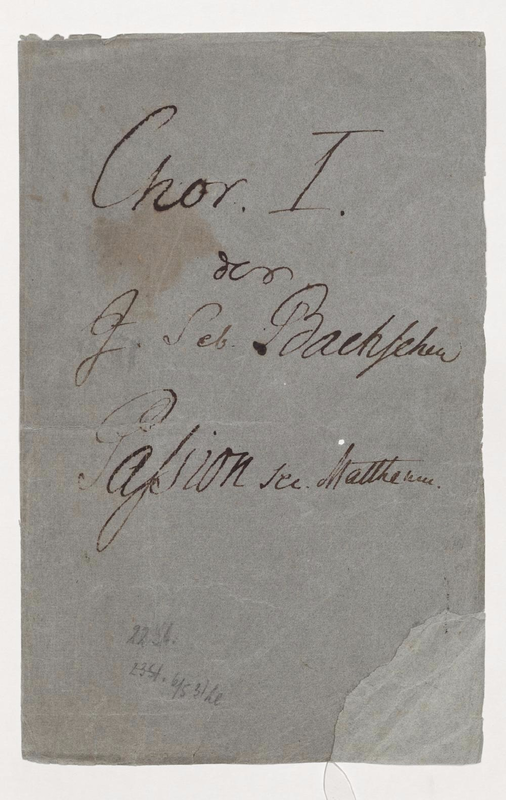 Chor. I.
der
J. Seb. Bachschen
Passion sec. Matthaeum.
22 St.
23 St.